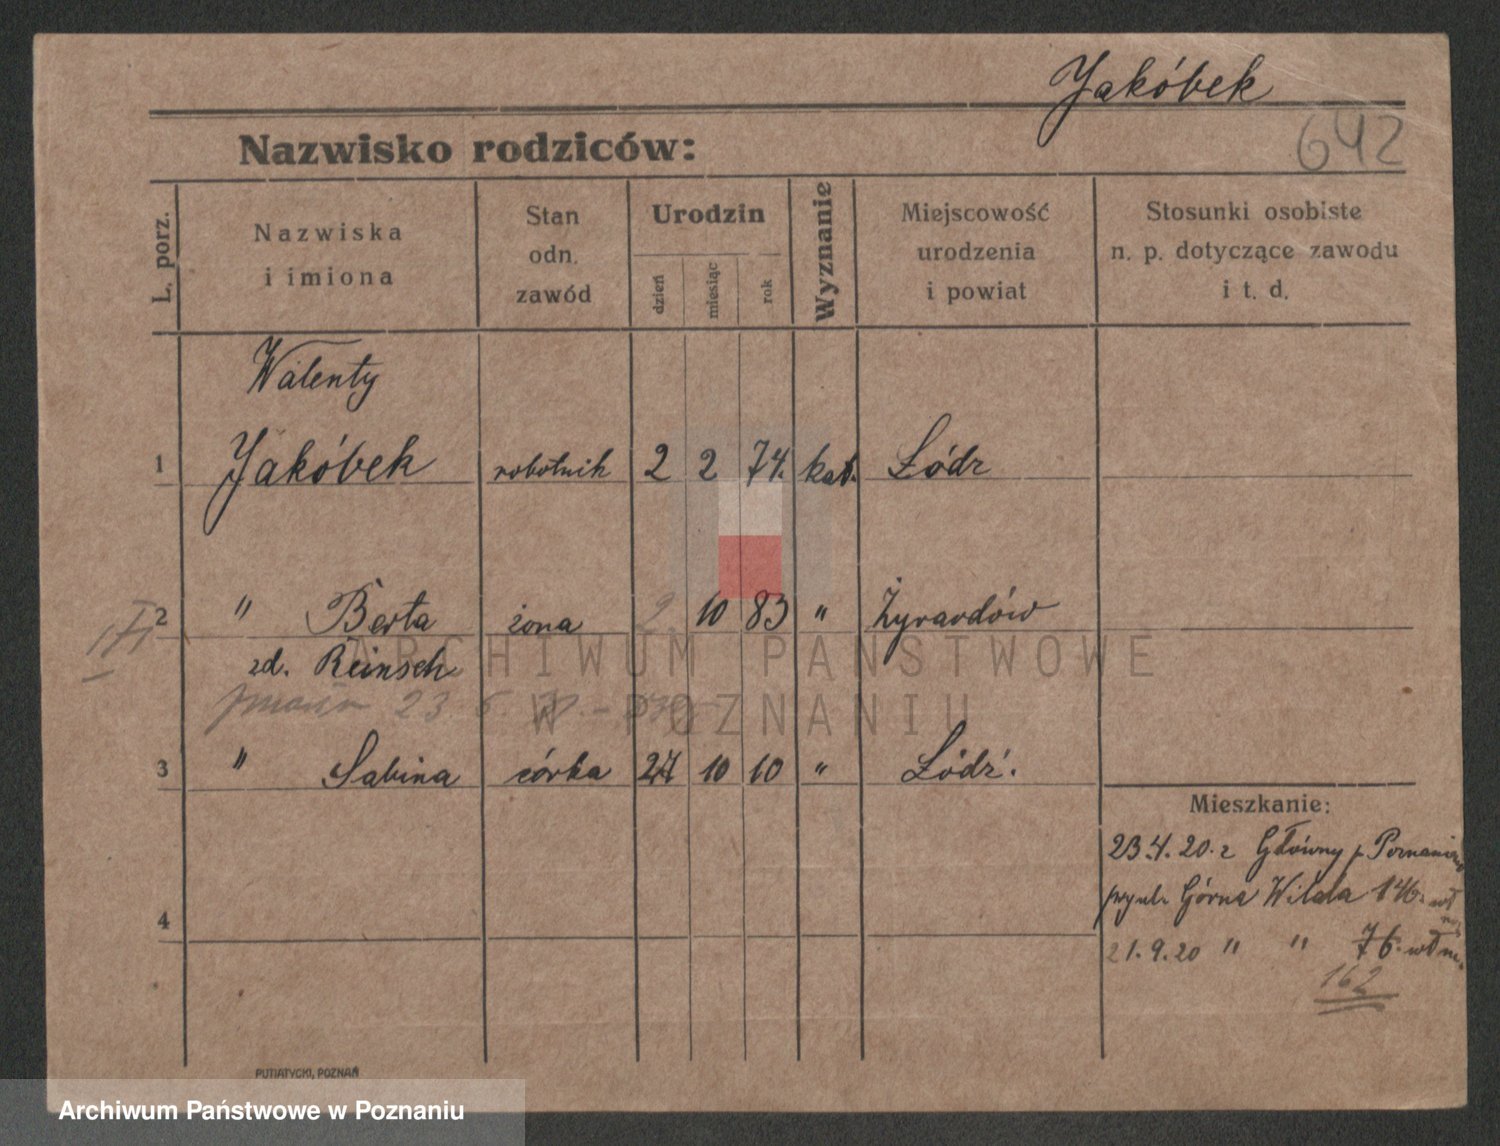 Jakóbek
642
Nazwisko rodziców:
L. porz.
Nazwiska
i imiona
Stan
odn.
zawód
Urodzin
dzień
miesiąc
rok
Wyznanie
Miejscowość
urodzenia
i powiat
Stosunki osobiste
n. p. dotyczące zawodu
i t. d.
Walenty
1 Jakóbek robotnik 2 2 74. kat. Łódz
2 " Berta żona 2 10 83 " Żyrardów
zd. Reinsch
23. 6.
3 " Sabina córka 27 10 10 " Łódź.
Mieszkanie:
23.4.20. z Główny p. Poznaniem
Górna Wilda 146.
4
21.9.20 " " 76.
162
PUTIATYCKI, POZNAŃ
ARCHIWUM PAŃSTWOWE
W POZNANIU
Archiwum Państwowe w Poznaniu